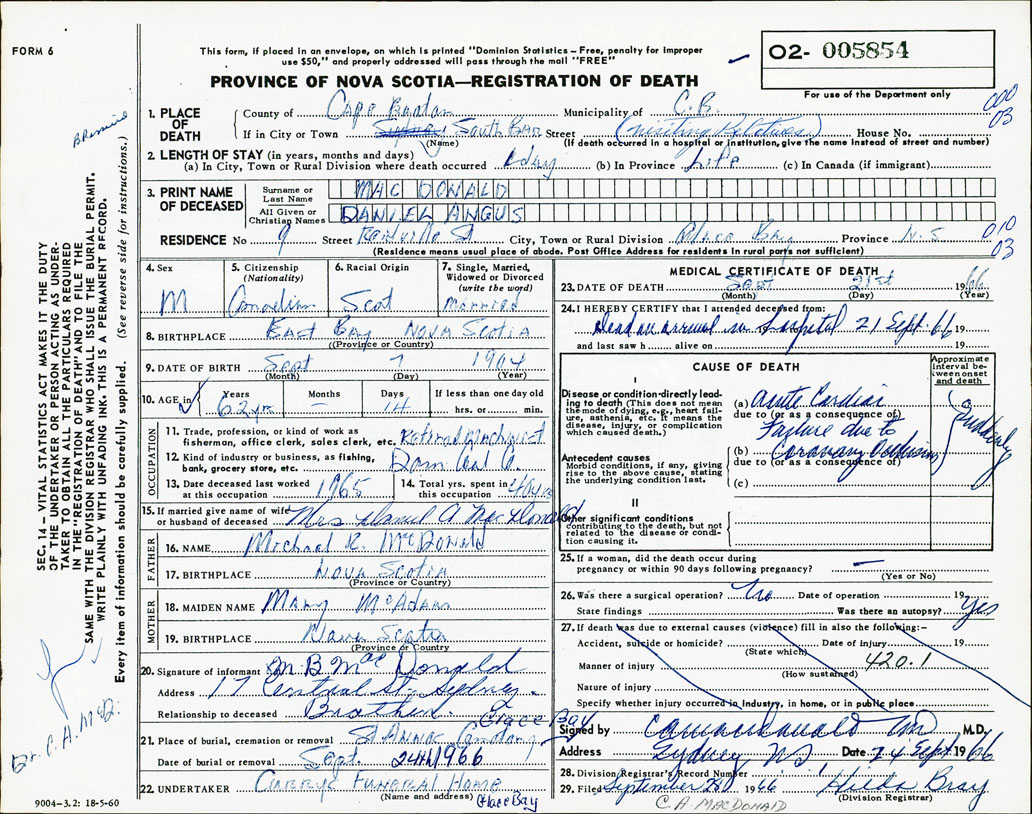 FORM 6
This form, if placed in an envelope, on which is printed "Dominion Statistics – Free, penalty for improper
use $50," and properly addressed will pass through the mail "FREE"
O2- 005854
For use of the Department only
PROVINCE OF NOVA SCOTIA—REGISTRATION OF DEATH
1. PLACE OF DEATH County of Cape Breton Municipality of C.B.
000
03
If in City or Town South Bar Street (Visiting Relatives) House No.
(Name) (If death occurred in a hospital or institution, give the name instead of street and number)
2. LENGTH OF STAY (in years, months and days)
(a) In City, Town or Rural Division where death occurred 1 day (b) In Province Life (c) In Canada (if immigrant)
3. PRINT NAME OF DECEASED
Surname or Last Name MAC DONALD
All Given or Christian Names DANIEL ANGUS
RESIDENCE No 9 Street St City, Town or Rural Division Glace Bay Province N.S
010
03
(Residence means usual place of abode. Post Office Address for residents in rural parts not sufficient)
4. Sex M
5. Citizenship (Nationality) Canadian
6. Racial Origin Scot
7. Single, Married, Widowed or Divorced (write the word) Married
8. BIRTHPLACE East Bay Nova Scotia
(Province or Country)
9. DATE OF BIRTH Sept 7 1904
(Month) (Day) (Year)
10. AGE in Years 62 yrs Months – Days 14 If less than one day old hrs. or min.
OCCUPATION
11. Trade, profession, or kind of work as fisherman, office clerk, sales clerk, etc. Retired Machinist
12. Kind of industry or business, as fishing, bank, grocery store, etc. Dom Coal Co.
13. Date deceased last worked at this occupation 1965
14. Total yrs. spent in this occupation 40 yrs
15. If married give name of wife or husband of deceased Mrs Daniel A MacDonald
FATHER
16. NAME Michael R. McDonald
17. BIRTHPLACE Nova Scotia
(Province or Country)
MOTHER
18. MAIDEN NAME Mary McAdam
19. BIRTHPLACE Nova Scotia
(Province or Country)
20. Signature of informant M.B. MacDonald
Address 17 Central St. Sydney.
Relationship to deceased Brother.
21. Place of burial, cremation or removal St Annes Cemetery Glace Bay
Date of burial or removal Sept. 24th 1966
22. UNDERTAKER Currys Funeral Home
(Name and address) Glace Bay
9004–3.2: 18-5-60
MEDICAL CERTIFICATE OF DEATH
23. DATE OF DEATH Sept 21st 1966
(Month) (Day) (Year)
24. I HEREBY CERTIFY that I attended deceased from:
Dead on arrival in Hospital 21 Sept. 66 19
and last saw h alive on 19
CAUSE OF DEATH
Approximate interval between onset and death
I
Disease or condition directly leading to death (This does not mean the mode of dying, e.g., heart failure, asthenia, etc. It means the disease, injury, or complication which caused death.)
(a) Acute Cardiac
due to (or as a consequence of)
Failure due to
Antecedent causes
Morbid conditions, if any, giving rise to the above cause, stating the underlying condition last.
(b) Coronary Occlusion
due to (or as a consequence of)
(c)
Suddenly
II
Other significant conditions
contributing to the death, but not related to the disease or condition causing it.
25. If a woman, did the death occur during pregnancy or within 90 days following pregnancy? –
(Yes or No)
26. Was there a surgical operation? No Date of operation 19
State findings Was there an autopsy? Yes
27. If death was due to external causes (violence) fill in also the following:–
Accident, suicide or homicide? Date of injury 19
(State which)
Manner of injury 420.1
(How sustained)
Nature of injury
Specify whether injury occurred in industry, in home, or in public place
Signed by CA MacDonald MD M.D.
Address Sydney NS Date 24 Sept 1966
28. Division Registrar's Record Number
29. Filed September 1966 Hilda Bray
(Division Registrar)
C.A. MACDONALD
SEC. 14 – VITAL STATISTICS ACT MAKES IT THE DUTY
OF THE UNDERTAKER OR PERSON ACTING AS UNDER-
TAKER TO OBTAIN ALL THE PARTICULARS REQUIRED
IN THE "REGISTRATION OF DEATH" AND TO FILE THE
SAME WITH THE DIVISION REGISTRAR WHO SHALL ISSUE THE BURIAL PERMIT.
WRITE PLAINLY WITH UNFADING INK. THIS IS A PERMANENT RECORD.
Every item of information should be carefully supplied. (See reverse side for instructions.)
Dr. C. A. McD.